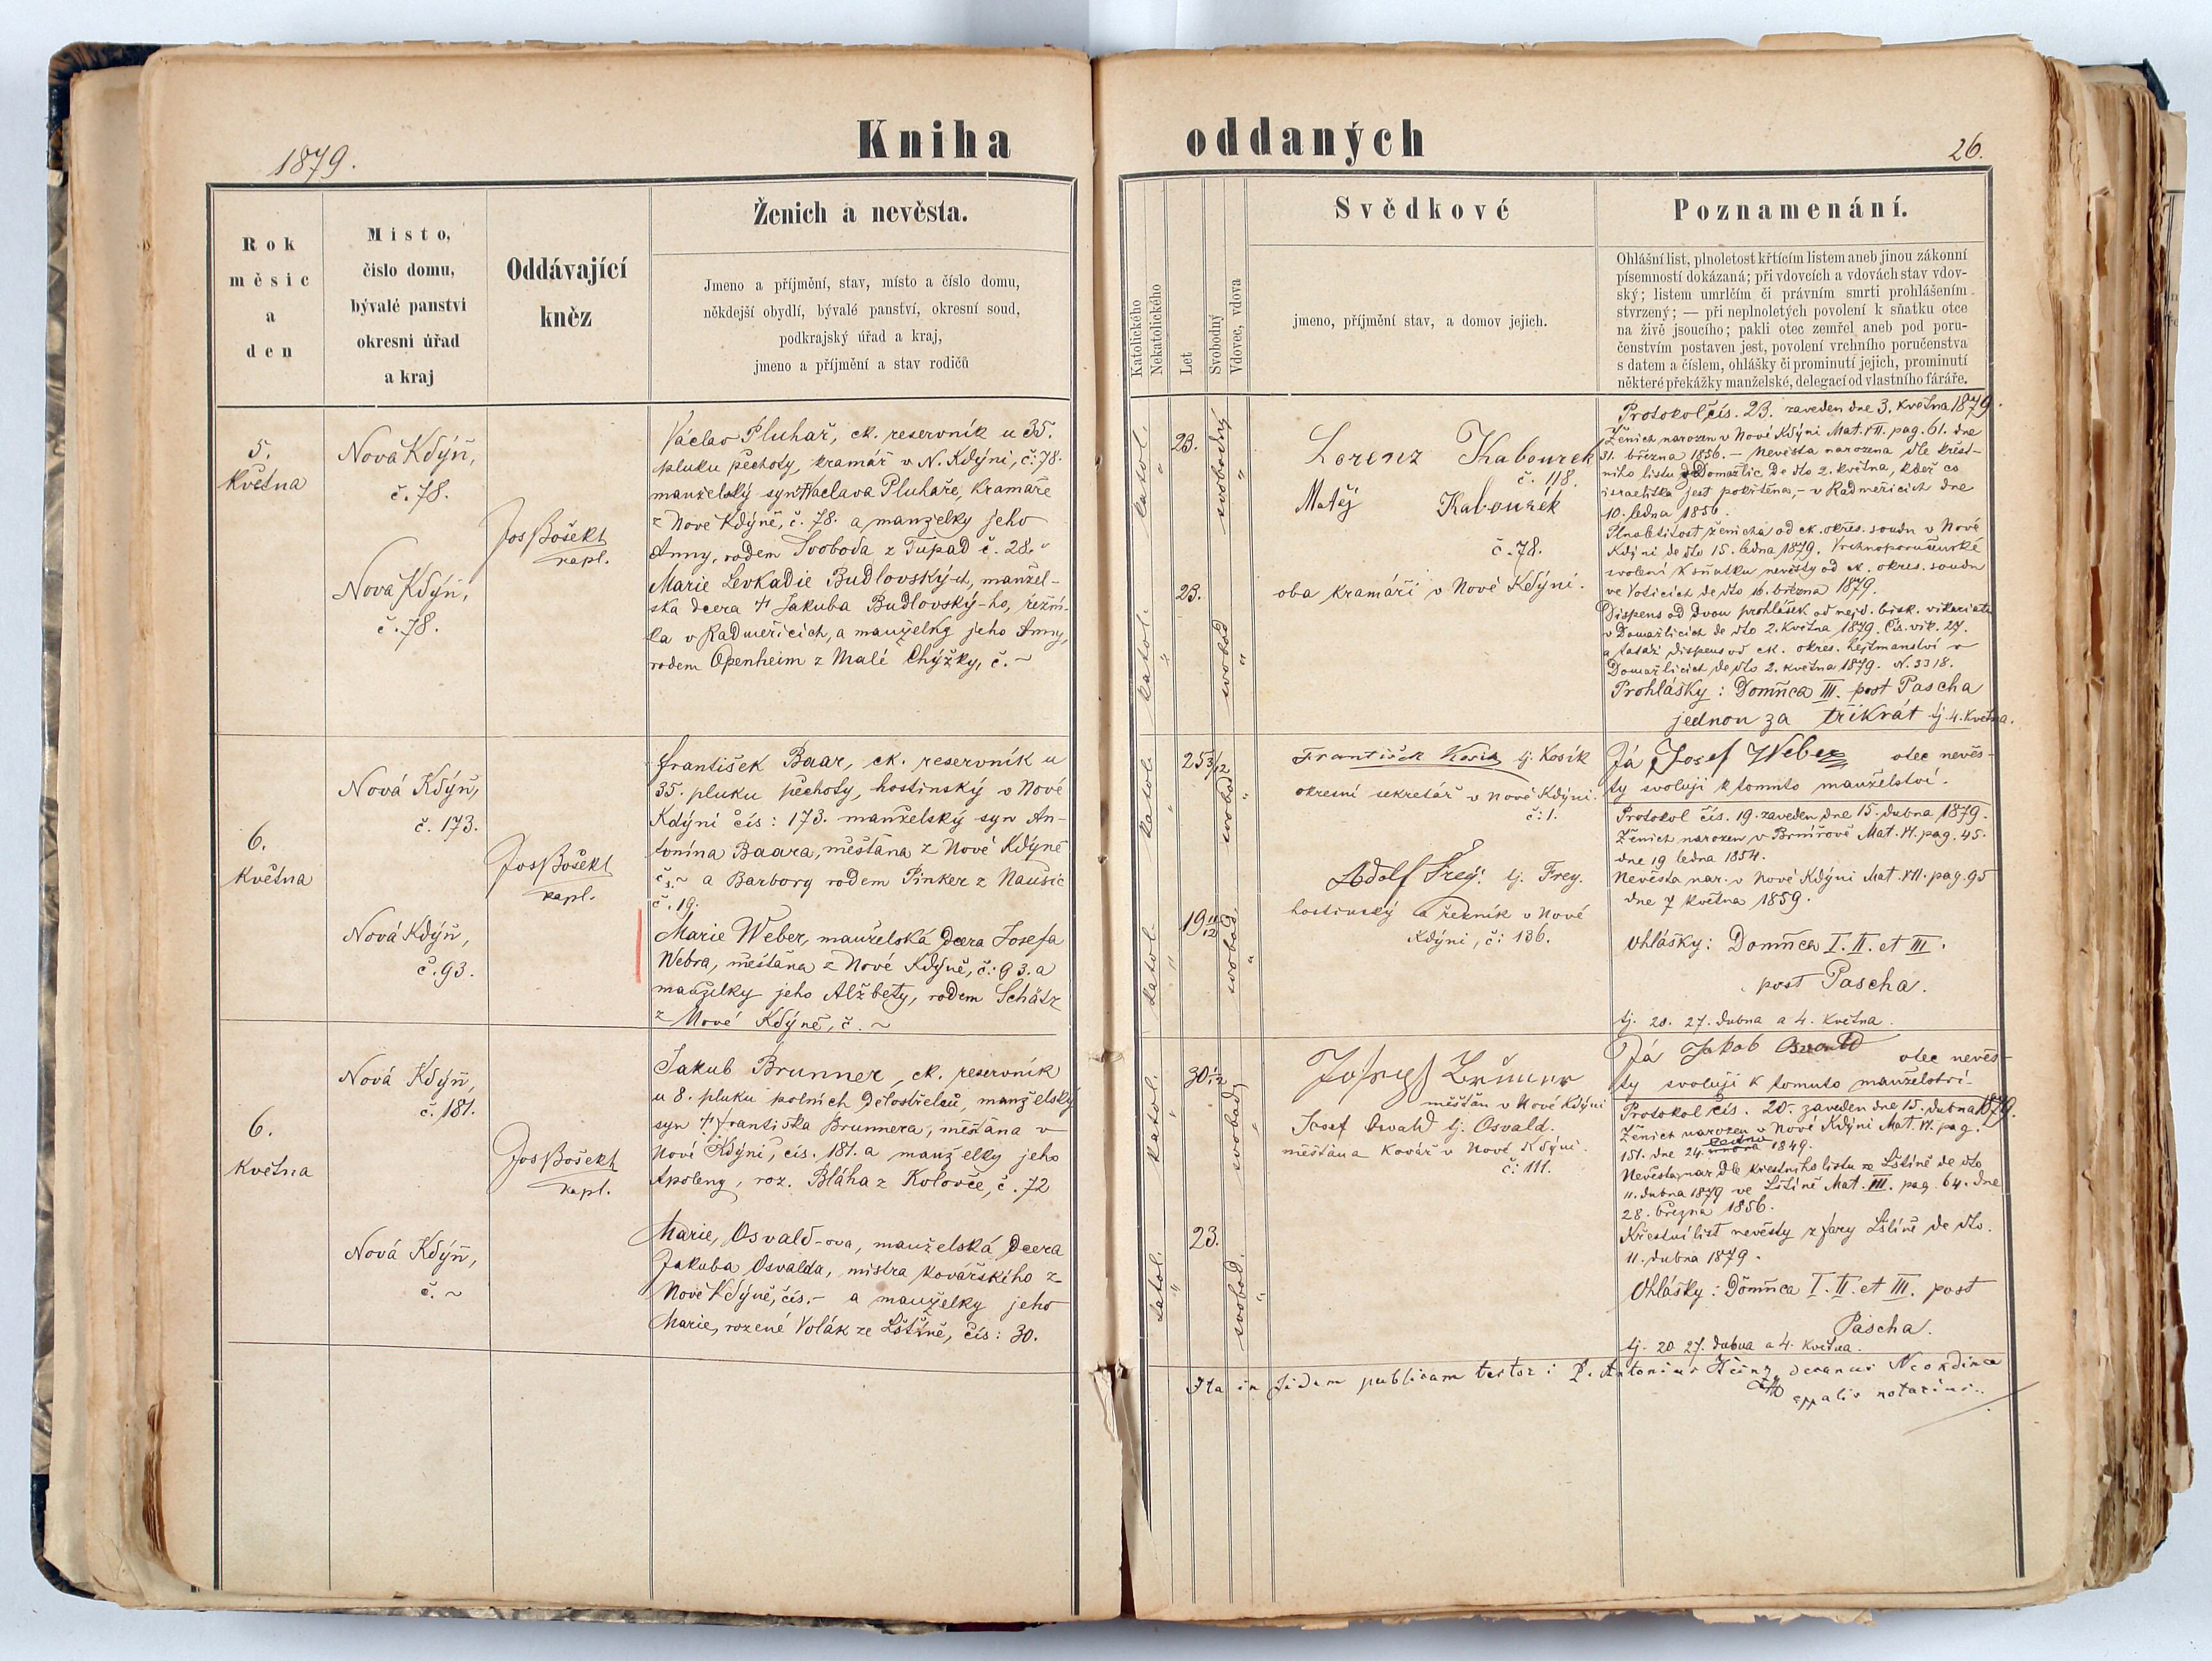 Kniha oddaných
1879.
26.
Rok
měsíc
a
den
Místo,
číslo domu,
bývalé panství
okresní úřad
a kraj
Oddávající
kněz
Ženich a nevěsta.
Jmeno a příjmění, stav, místo a číslo domu,
někdejší obydlí, bývalé panství, okresní soud,
podkrajský úřad a kraj,
jmeno a příjmění a stav rodičů
Katolického
Nekatolického
Let
Svobodný
Vdovec, vdova
Svědkové
jmeno, příjmění stav, a domov jejich.
Poznamenání.
Ohlášní list, plnoletost křtícím listem aneb jinou zákonní
písemností dokázaná; při vdovcích a vdovách stav vdov-
ský; listem umrlčím či právním smrti prohlášením
stvrzený; — při neplnoletých povolení k sňatku otce
na živě jsoucího; pakli otec zemřel aneb pod poru-
čenstvím postaven jest, povolení vrchního poručenstva
s datem a číslem, ohlášky či prominutí jejich, prominutí
některé překážky manželské, delegací od vlastního fáráře.
5.
května
Nová Kdýň,
č. 78.
Nová Kdýň,
č. 78.
Jos Bošekt
kapl.
Václav Pluhař, ck. reservník u 35.
pluku pěchoty, kramář v N. Kdýni, č: 78.
manželský syn † Václava Pluhaře, kramáře
z Nové Kdýně, č. 78. a manželky jeho
Anny, rodem Svoboda z Tupad č. 28.
Marie Levkadie Budlovský-ch, manžel-
ská dcera † Jakuba Budlovský-ho, řezní-
ka v Radměřicích, a manželky jeho Anny,
rodem Openheim z Malé Chýžky, č. ~
katol.
"
23.
svobodný
"
katol.
"
23.
svobod
"
Lorenz Kabourek
č. 118.
Matěj Kabourek
č. 78.
oba kramáři v Nové Kdýni.
Protokol čís. 23. zaveden dne 3. května 1879.
Ženich narozen v Nové Kdýni Mat. VII. pag. 61. dne
31. března 1856. – Nevěsta narozena dle křest-
ního listu z Domažlic de dto 2. května, kdež co
israelitka jest pokřtěna, – v Radměřicích dne
10. ledna 1856.
Plnoletitost ženicha od ck. okres. soudu v Nové
Kdýni de dto 15. ledna 1879. Vrchnoporučenské
svolení k sňatku nevěsty od ck. okres. soudu
ve Voticích de dto 16. března 1879.
Dispens od dvou prohlášek od nejd. bisk. vikariatu
v Domažlicích de dto 2. května 1879. čís. vik. 27.
a tatáž dispens od ck. okres. hejtmanství v
Domažlicích de dto 2. května 1879. N. 3318.
Prohlášky: Domin̄ca III. post Pascha
jednou za třikrát tj. 4. května.
6.
května
Nová Kdýň,
č. 173.
Nová Kdýň,
č. 93.
Jos Bošekt
kapl.
František Baar, ck. reservník u
35. pluku pěchoty, hostinský v Nové
Kdýni čís: 173. manželský syn An-
tonína Baara, měšťana z Nové Kdýně
č. ~ a Barbory rodem Pinker z Naušic
č. 19.
Marie Weber, manželská dcera Josefa
Webra, měšťana z Nové Kdýně, č: 93. a
manželky jeho Alžběty, rodem Schätz
z Nové Kdýně, č. ~
katol.
"
25 3/12
svobod
"
katol.
"
19 11/12
svobod.
"
František Kosik tj. Kosík
okresní sekretář v Nové Kdýni.
č: 1.
Adolf Frey. tj. Frey.
hostinský a řezník v Nové
Kdýni, č: 136.
Já Josef Weber otec nevěs-
ty svoluji k tomuto manželství.
Protokol čís. 19. zaveden dne 15. dubna 1879.
Ženich narozen v Brnířově Mat. VI. pag. 45.
dne 19 ledna 1854.
Nevěsta nar. v Nové Kdýni Mat. VII. pag. 95
dne 7 května 1859.
Ohlášky: Domin̄ca I. II. et III.
post Pascha.
tj. 20. 27. dubna a 4. května.
6.
května
Nová Kdýň,
č. 181.
Nová Kdýň,
č. ~
Jos Bošekt
kapl.
Jakub Brunner, ck. reservník
u 8. pluku polních dělostřelců, manželský
syn † Františka Brunnera, měšťana v
Nové Kdýni, čís. 181. a manželky jeho
Apoleny, roz. Bláha z Kolovče, č. 72
Marie, Osvald-ova, manželská dcera
Jakuba Osvalda, mistra kovářského z
Nové Kdýně, čís. – a manželky jeho
Marie, rozené Volák ze Lštíně, čís: 30.
katol.
"
30 1/12
svobod.
"
katol.
"
23.
svobod.
"
měšťan v Nové Kdýni
Josef Oswald tj. Osvald.
měšťan a kovář v Nové Kdýni.
č: 111.
Já Jakob Oswald otec nevěs-
ty svoluji k tomuto manželství.
Protokol čís. 20. zaveden dne 15. dubna 1879.
Ženich narozen v Nové Kdýni Mat. VI. pag.
151. dne 24. ledna 1849.
Nevěsta nar. dle křestního listu ze Lštíně de dto
11. dubna 1879 ve Lštíně Mat. III. pag. 64. dne
28. března 1856.
Křestní list nevěsty z fary Lštíně de dto.
11. dubna 1879.
Ohlášky: Domin̄ca I. II. et III. post
Pascha.
tj. 20. 27. dubna a 4. května.
Ita in fidem publicam testor: P. Antonius decanus Neokdinea
eppalis notarius.